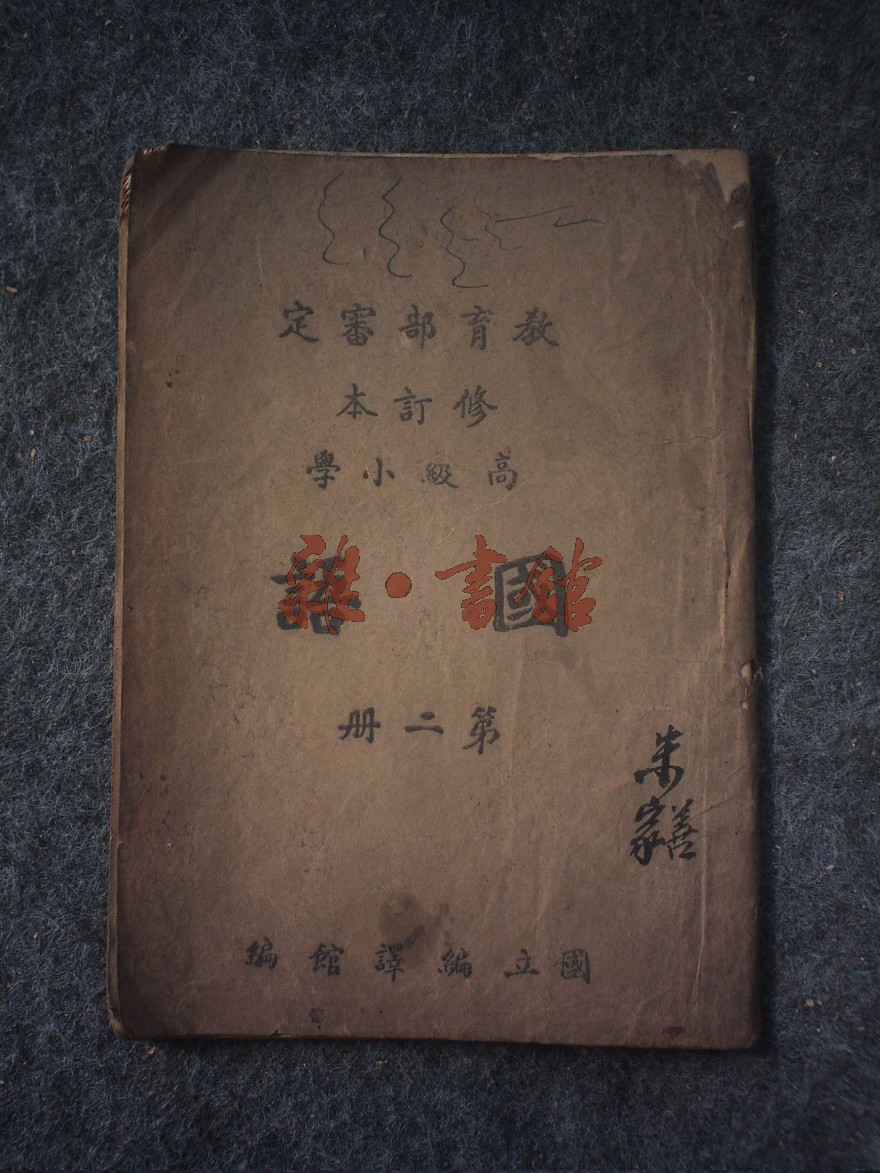 教育部審定
修訂本
高級小學
國語
雜·書館
第二冊
朱家善
國立編譯館編